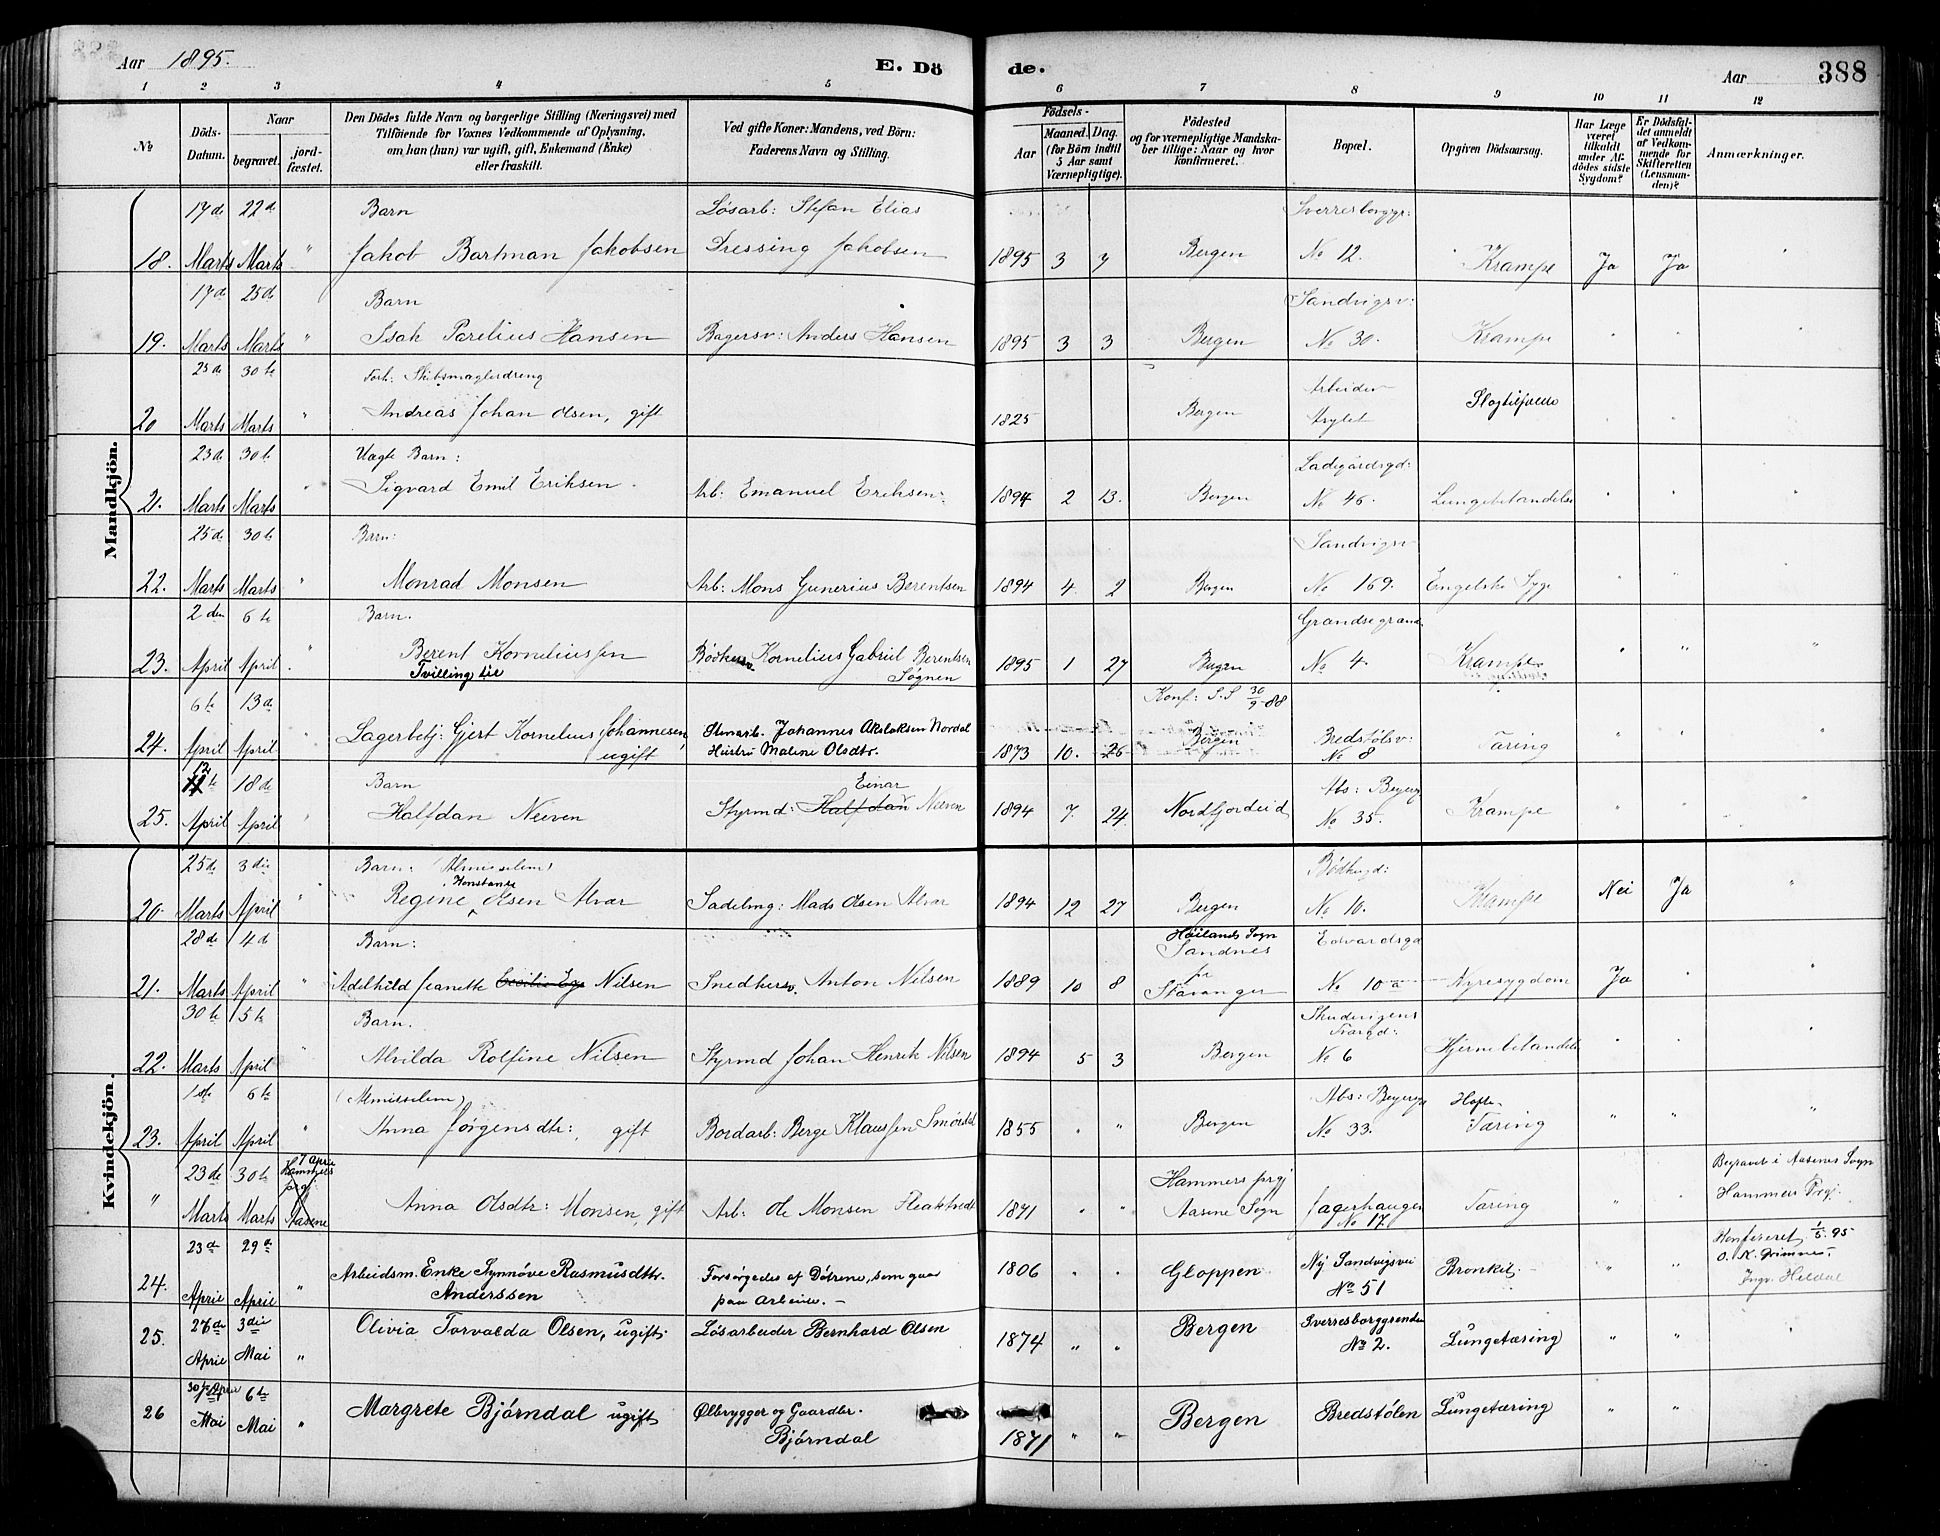 Aar 1895.
E. Dö
de.
Aar
388
1 2 3 4 5 6 7 8 9 10 11 12
No
Döds-
Datum.
Naar
begravet.
jord-
fæstet.
Den Dödes fulde Navn og borgerlige Stilling (Næringsvei) med
Tilföiende for Voxnes Vedkommende af Oplysning,
om han (hun) var ugift, gift, Enkemand (Enke)
eller fraskilt.
Ved gifte Koner: Mandens, ved Börn:
Faderens Navn og Stilling.
Födsels-
Aar
Maaned. Dag.
(for Börn indtil
5 Aar samt
Værnepligtige).
Födested
og for værnepligtige Mandska-
ber tillige: Naar og hvor
konfirmeret.
Bopæl.
Opgiven Dödsaarsag.
Har Læge
været
tilkaldt
under Af-
dödes sidste
Sygdom?
Er Dödsfal-
det anmeldt
af Vedkom-
mende for
Skifteretten
(Lensman-
den)?
Anmærkninger.
Mandkjön.
17de 22de Barn Løsarb: Stefan Elias Sverresborggr:
18. Marts Marts " Jakob Bartman Jakobsen Dressing Jakobsen 1895 3 7 Bergen No 12. Krampe Ja Ja "
17de 25de Barn Sandvigsv:
19. Marts Marts " Isak Parelius Hansen Bagersv: Anders Hansen 1895 3 3 Bergen No 30. Krampe " " "
25de 30te Forh: Skibsmaglerdreng Arbeider
20 Marts Marts " Andreas Johan Olsen, gift 1825 Bergen Asylet Slagtilfælde " "
23de 30te Uægte Barn: Ladegårdsgd:
21. Marts Marts " Sigvard Emil Eriksen. Arb: Emanuel Eriksen. 1894 2 13. Bergen No 46. Lungebetændelse " " "
25de 30te Barn: Sandvigsv
22. Marts Marts " Monrad Monsen Arb: Mons Gunerius Berentsen 1894 4. 2 Bergen No 169. Engelske Syge " " "
2den 6te Barn. Grandsegrand
23. April April " Berent Korneliussen Bødkersv. Kornelius Gabriel Berentsen 1895 1 27 Bergen No 4. Krampe " " "
Tvilling til Søgnen
6te 13de Konf: S.S 30/9-88
24. April April " Lagerbetj: Gjert Kornelius Johannesen, ugift Stenarb. Johannes Akslaksen Nordal Hustru Maline Olsdtr. 1873 10. 26 Bergen Bredstølsv: No 8 Tæring " "
12te 18de Barn Einar Abs: Beyersg
25. April April " Halfdan Neeven Styrmd: Halfdan Neeven 1894 7. 24. Nordfjordeid No 35. Krampe " " "
Kvindekjön.
25de 3die Barn: (Almisselem) Bødkergd:
Konstanse
20. Marts April " Regine Olsen Alvær Sadelmg: Mads Olsen Alvær 1894 12 27 Bergen No 10. Krampe Nei Ja "
28de 4de Barn: Høilands Sogn Edvardsgd
Sandnes
21. Marts April " Adelhild Jeanette Nilsen Snedkersv. Anton Nilsen 1889 10 8 pr Stavanger No 10a Nyresygdom Ja " "
30te 5te Barn. Tværgd:
22. Marts April " Alvilda Rolfine Nilsen Styrmd Johan Henrik Nilsen 1894 5 3 Bergen No 6 Hjernebetændelse " " "
1ste 6te (Almisselem) Abs: Beyersg Hofte-
23. April April " Anna Jørgensdtr:, gift Bordarb: Berge Klaussen Smørdal 1855 " " Bergen No 33. Tæring " " "
23de 30te 7 April Hammers prgj. Hammers prgj Begravet i Aasenes Sogn
" Marts Marts Aasene Anna Olsdtr: Monsen, gift Arb: Ole Monsen 1871 " " Aasene Sogn No 17. Tæring " " Hammers Prgj.
23de 29de Konfereret 1/5 95
24. April April " Arbeidsm. Enke Synnöve Rasmusdtr. Anderssen Forsörgedes af Dötrene, som gaar paa Arbeide. - 1806 " " Gloppen Ny Sandvigsvei No 51 Bronkit. " " O. K. Grimnes Ingv. Heldal
26de 3die
25. April Mai " Olivia Torvalda Olsen, ugift. Lösarbeider Bernhard Olsen 1874 " " Bergen Sverresborggrenden No 2. Lungetæring " " "
30te April 6te
26 Mai Mai " Margrete Bjørndal ugift Ølbrygger og Gaardbr. Bjørndal 1871 " " Bergen Bredstølen Lungetæring " "